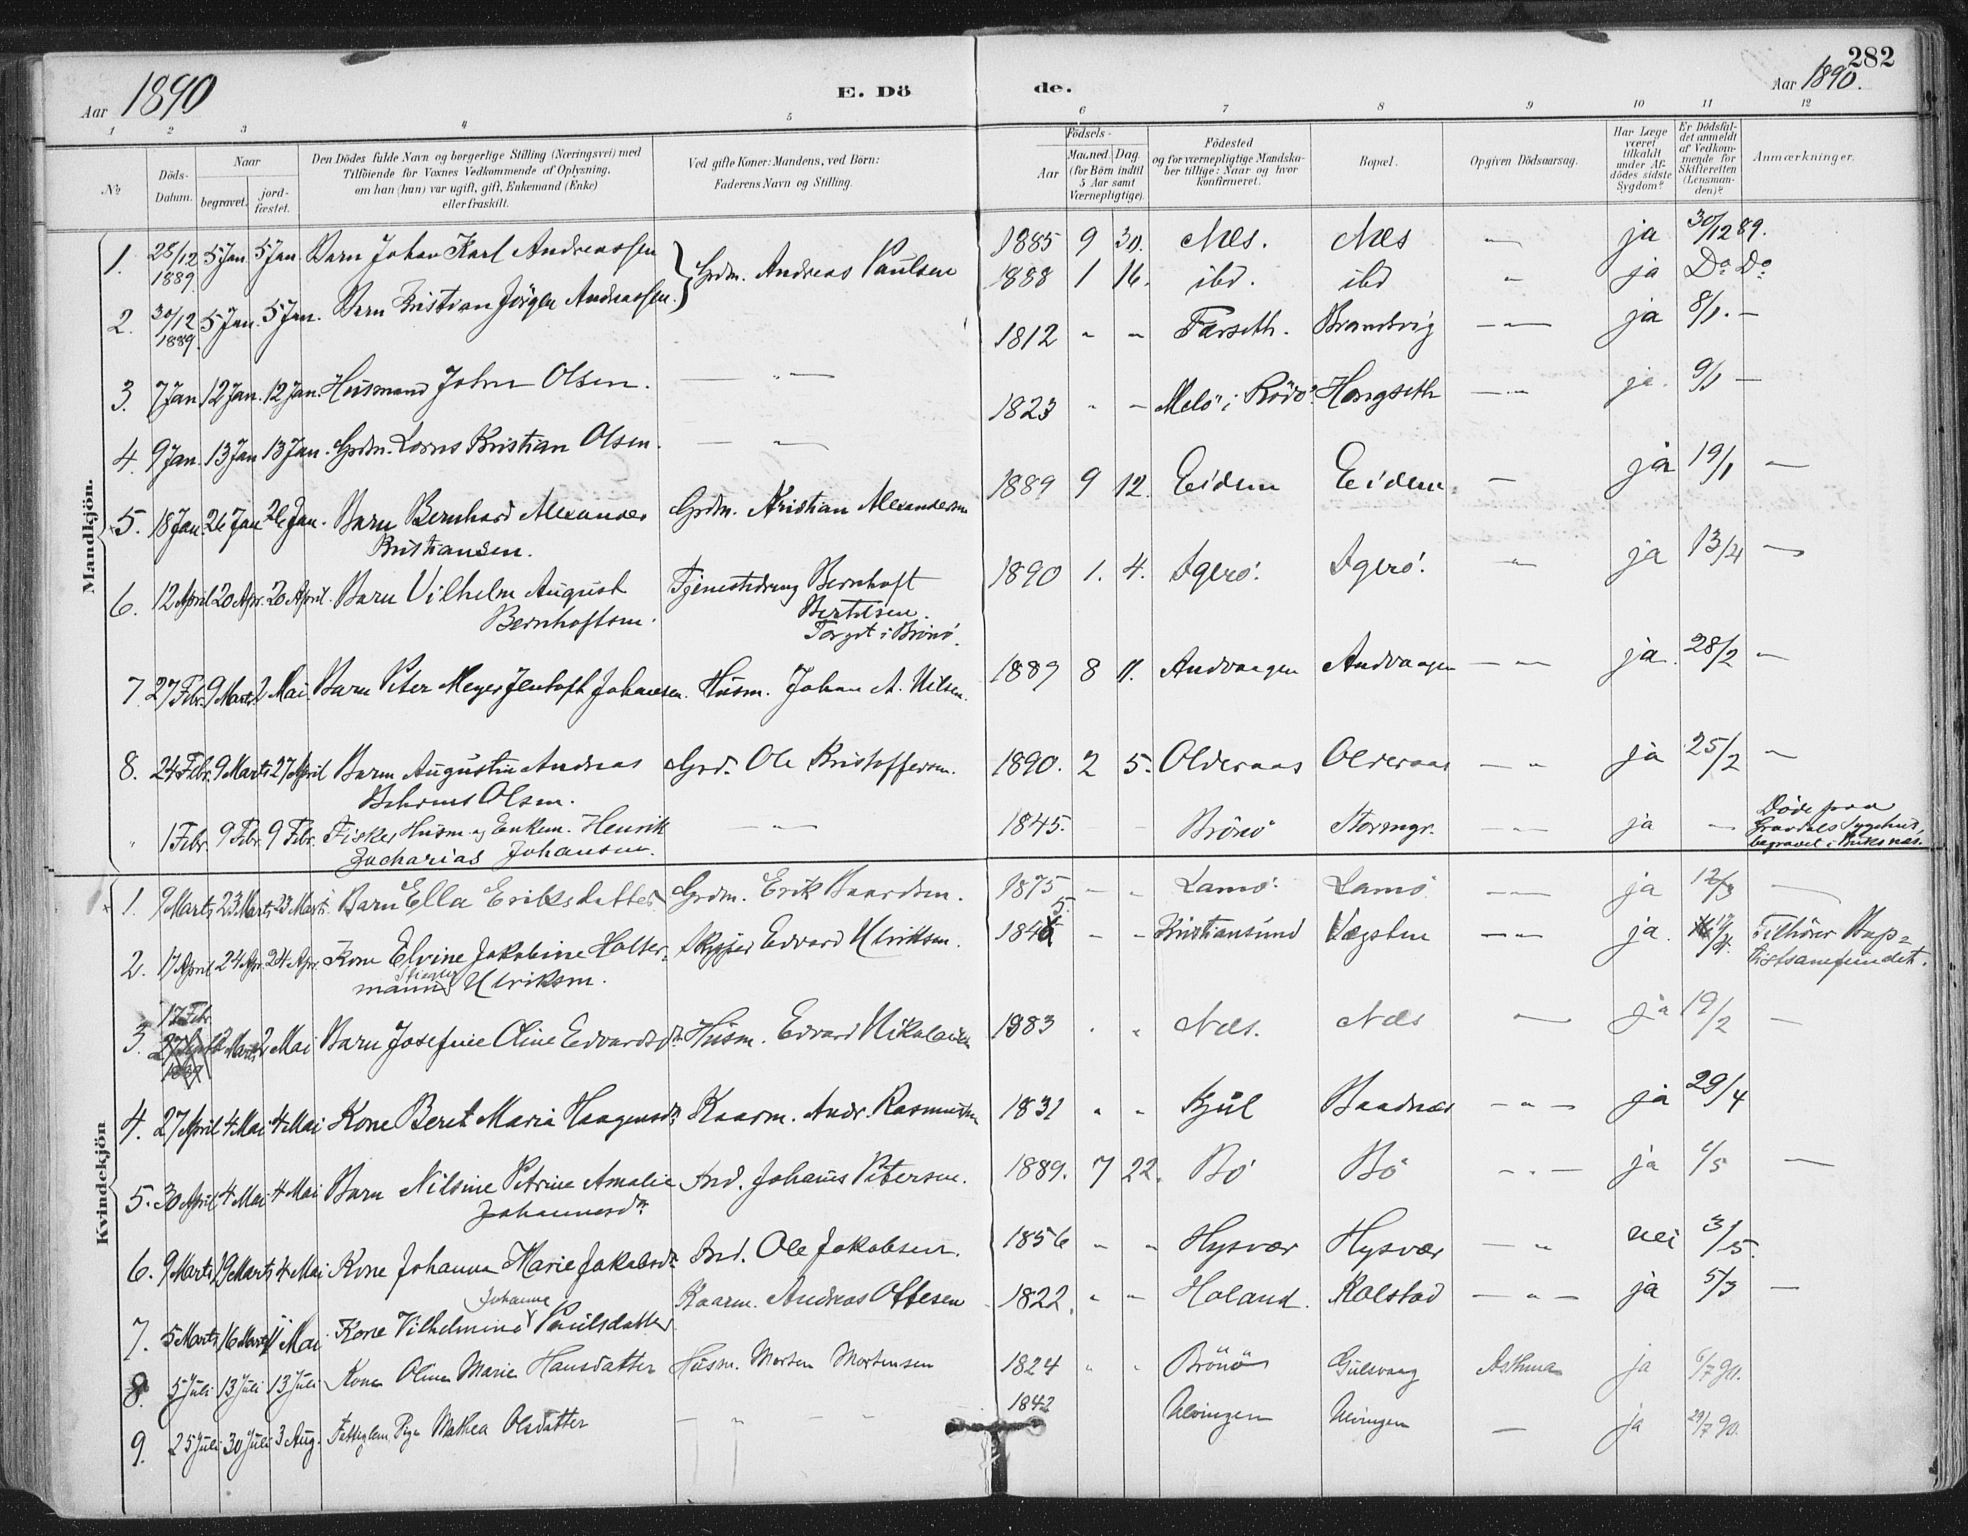 282
Aar 1890
E. Dö de.
Aar 1890.
1 2 3 4 5 6 7 8 9 10 11 12
No
Döds-Datum.
Naar
begravet.
jord-fæstet.
Den Dödes fulde Navn og borgerlige Stilling (Næringsvei) med
Tilföiende for Voxnes Vedkommende af Oplysning,
om han (hun) var ugift, gift, Enkemand (Enke)
eller fraskilt.
Ved gifte Koner: Mandens, ved Börn:
Faderens Navn og Stilling.
Födsels-
Aar
Maaned Dag
(for Börn indtil
5 Aar samt
Værnepligtige).
Födested
og for værnepligtige Mandska-
ber tillige: Naar og hvor
konfirmeret.
Bopæl.
Opgiven Dödsaarsag.
Har Læge
været
tilkaldt
under Af-
dödes sidste
Sygdom?
Er Dödsfal-
det anmeldt
af Vedkom-
mende for
Skifteretten
(Lensman-
den)?
Anmærkninger.
Mandkjön.
1. 28/12 1889 5 Jan 5 Jan Barn Johan Karl Andreassen Grdm. Andreas Paulsen 1885 9 30. Næs. Næs — ja 30/12 89.
2. 30/12 1889. 5 Jan. 5 Jan. Barn Kristian Jörgen Andreassen. 1888 1 16. ibd. ibd " ja Do Do
3. 7 Jan 12 Jan. 12 Jan. Husmand John Olsen. — " — 1812 " " Færseth. Brandvig — " — ja 8/1. —
4. 9 Jan. 13 Jan 13 Jan. Grdm. Kristian Olsen. — " — 1823 " — Melö i Rödö. Hongseth — " — ja. 9/1 —
5. 18 Jan. 26 Jan 26 Jan. Barn Bernhard Alexander
Kristiansen. Grdm. Kristian Alexandersen 1889 9 12. Eidem Eidem — ja 19/1 —
6. 12 April 20 Apr. 20 April Barn Vilhelm August
Bernhoftsen. Tjenestedreng Bernhoft
Bertelsen.
Torget i Brönö. 1890 1. 4. Igerö. Igerö. " ja 13/4 —
7 27 Febr. 9 Marts. 2 Mai Barn Peter Meyer Jenhoft Johansen. Husm. Johan A. Nilsen. 1889 8 11. Andvaagen Andvaagen — " — ja. 28/2 —
8. 24 Febr. 9 Marts 27 April Barn Augustin Andreas
Olsen. Grd. Ole Kristoffersen. 1890. 2 5. Olderaas Olderaas — " ja 25/2 —
" 1 Febr. 9 Febr. 9 Febr. Fisker Husm. og Enkem. Henrik
Zacharias Johansen. — " — 1845. — Brönö Stormgr. — " — ja — Döde paa
Gravdals Sygehus,
begravet i Buksnæs.
Kvindekjön
1. 9 Marts 23 Marts 23 Marts Barn Ella Eriksdatter Grdm. Erik Baardsen. 1875 — " Lamö. Lamö — " — ja 12/3 —
2. 17 April 24 Apr. 24 Apr. Kone Elvine Jakobine Holter-
mann Ulriksen. Skipper Edvard Ulriksen. 1845 — — Kristiansund Vægsten — " — ja. 17/4. Tilhörer Bap=
tistsamfundet.
3. 17 Febr 2 Marts 2 Mai Barn Josefine Oline Edvardsdr. Husm. Edvard Nikolaisen 1883 . " Næs. Næs — ja 19/2 —
4. 27 April 4 Mai 4 Mai Kone Beret Maria Haagensdr. Kaarm. Andr. Rasmussen 1831 " " Kjul Baadnæs — " — ja 29/4
5. 30 April 4 Mai 4 Mai Barn Nilsine Petrine Amalie
Johannesdr. Ind. Johanes Petersen. 1889. 7 22. Bö Bö — " — ja 1/5 —
6. 9 Marts 19 Marts 4 Mai Kone Johanna Marie Jakobsdr. Ind. Ole Jakobsen. 1856 " " Hysvær Hysvær — " nei 3/5.
7. 5 Marts 16 Marts 11 Mai Kone Vilhelmine Johanne Paulsdatter Kaarm. Andreas Ottesen 1822. " " Holand. Rolstad — " — ja 5/3 —
8. 5 Juli 13 Juli 13 Juli Kone Oline Marie Hansdatter Husm. Morten Mortensen 1824 " " Brönö Gulsvaag Asthma ja 6/7 90.
9. 25 Juli 30 Juli 3 Aug. Fattiglem, Pige Mathea Olsdatter — " — " 1842 Ulvingen Ulvingen — ja 29/7 90.